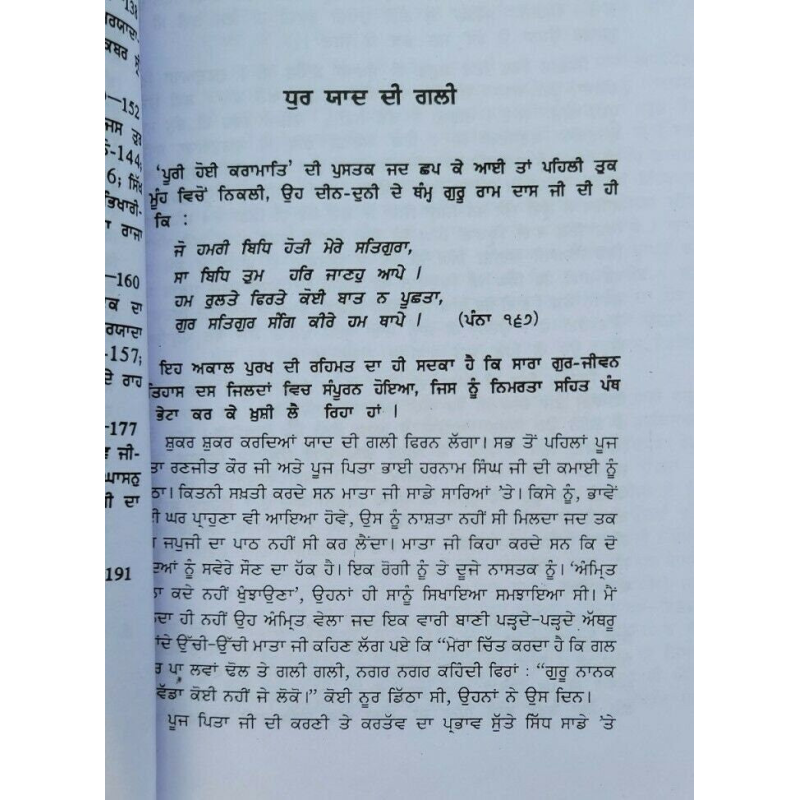 138
ਰਯਾਦਾ
ਕਬਰ ਨੂੰ
152
ਜਸ ਗੁਰ
144;
6; ਸਿੱਖ
ਭਿਖਾਰੀ-
ਰਾਜਾ
—160
ਕ ਦਾ
ਰਯਾਦਾ
-157;
ਦੇ ਰਾਹ
-177
ਜੀ-
ਘਾਸਨੁ
ਜੀ ਦਾ
191
ਧੁਰ ਯਾਦ ਦੀ ਗਲੀ
‘ਪੂਰੀ ਹੋਈ ਕਰਾਮਾਤਿ’ ਦੀ ਪੁਸਤਕ ਜਦ ਛਪ ਕੇ ਆਈ ਤਾਂ ਪਹਿਲੀ ਤੁਕ
ਮੂੰਹ ਵਿਚੋਂ ਨਿਕਲੀ, ਉਹ ਦੀਨ-ਦੁਨੀ ਦੇ ਥੰਮ੍ਹ ਗੁਰੂ ਰਾਮ ਦਾਸ ਜੀ ਦੀ ਹੀ
ਕਿ :
ਜੋ ਹਮਰੀ ਬਿਧਿ ਹੋਤੀ ਮੇਰੇ ਸਤਿਗੁਰਾ,
ਸਾ ਬਿਧਿ ਤੁਮ ਹਰਿ ਜਾਣਹੁ ਆਪੇ ।
ਹਮ ਰੁਲਤੇ ਫਿਰਤੇ ਕੋਈ ਬਾਤ ਨ ਪੂਛਤਾ,
ਗੁਰ ਸਤਿਗੁਰ ਸੰਗਿ ਕੀਰੇ ਹਮ ਥਾਪੇ । (ਪੰਨਾ ੧੬੭)
ਇਹ ਅਕਾਲ ਪੁਰਖ ਦੀ ਰਹਿਮਤ ਦਾ ਹੀ ਸਦਕਾ ਹੈ ਕਿ ਸਾਰਾ ਗੁਰ-ਜੀਵਨ
ਤਿਹਾਸ ਦਸ ਜਿਲਦਾਂ ਵਿਚ ਸੰਪੂਰਨ ਹੋਇਆ, ਜਿਸ ਨੂੰ ਨਿਮਰਤਾ ਸਹਿਤ ਪੰਥ
ਭੇਟਾ ਕਰ ਕੇ ਖ਼ੁਸ਼ੀ ਲੈ ਰਿਹਾ ਹਾਂ ।
ਸ਼ੁਕਰ ਸ਼ੁਕਰ ਕਰਦਿਆਂ ਯਾਦ ਦੀ ਗਲੀ ਫਿਰਨ ਲੱਗਾ। ਸਭ ਤੋਂ ਪਹਿਲਾਂ ਪੂਜ
ਤਾ ਰਣਜੀਤ ਕੌਰ ਜੀ ਅਤੇ ਪੂਜ ਪਿਤਾ ਭਾਈ ਹਰਨਾਮ ਸਿੰਘ ਜੀ ਦੀ ਕਮਾਈ ਨੂੰ
ਠਾ। ਕਿਤਨੀ ਸਖ਼ਤੀ ਕਰਦੇ ਸਨ ਮਾਤਾ ਜੀ ਸਾਡੇ ਸਾਰਿਆਂ 'ਤੇ। ਕਿਸੇ ਨੂੰ, ਭਾਵੇਂ
ਈ ਘਰ ਪ੍ਰਾਹੁਣਾ ਵੀ ਆਇਆ ਹੋਵੇ, ਉਸ ਨੂੰ ਨਾਸ਼ਤਾ ਨਹੀਂ ਸੀ ਮਿਲਦਾ ਜਦ ਤਕ
ਜਪੁਜੀ ਦਾ ਪਾਠ ਨਹੀਂ ਸੀ ਕਰ ਲੈਂਦਾ। ਮਾਤਾ ਜੀ ਕਿਹਾ ਕਰਦੇ ਸਨ ਕਿ ਦੋ
ਦਿਆਂ ਨੂੰ ਸਵੇਰੇ ਸੌਣ ਦਾ ਹੱਕ ਹੈ। ਇਕ ਰੋਗੀ ਨੂੰ ਤੇ ਦੂਜੇ ਨਾਸਤਕ ਨੂੰ। ‘ਅੰਮ੍ਰਿਤ
ਲਾ ਕਦੇ ਨਹੀਂ ਖੁੰਝਾਉਣਾ’, ਉਹਨਾਂ ਹੀ ਸਾਨੂੰ ਸਿਖਾਇਆ ਸਮਝਾਇਆ ਸੀ। ਮੈਂ
ਲਦਾ ਹੀ ਨਹੀਂ ਉਹ ਅੰਮ੍ਰਿਤ ਵੇਲਾ ਜਦ ਇਕ ਵਾਰੀ ਬਾਣੀ ਪੜ੍ਹਦੇ-ਪੜ੍ਹਦੇ ਅੱਥਰੂ
ਾਂਦੇ ਉੱਚੀ-ਉੱਚੀ ਮਾਤਾ ਜੀ ਕਹਿਣ ਲੱਗ ਪਏ ਕਿ “ਮੇਰਾ ਚਿੱਤ ਕਰਦਾ ਹੈ ਕਿ ਗਲ
ਚ ਪਾ ਲਵਾਂ ਢੋਲ ਤੇ ਗਲੀ ਗਲੀ, ਨਗਰ ਨਗਰ ਕਹਿੰਦੀ ਫਿਰਾਂ : “ਗੁਰੂ ਨਾਨਕ
ਵੱਡਾ ਕੋਈ ਨਹੀਂ ਜੇ ਲੋਕੋ।” ਕੋਈ ਨੂਰ ਡਿੱਠਾ ਸੀ, ਉਹਨਾਂ ਨੇ ਉਸ ਦਿਨ।
ਪੂਜ ਪਿਤਾ ਜੀ ਦੀ ਕਰਣੀ ਤੇ ਕਰਤੱਵ ਦਾ ਪ੍ਰਭਾਵ ਸੁੱਤੇ ਸਿੱਧ ਸਾਡੇ 'ਤੇ